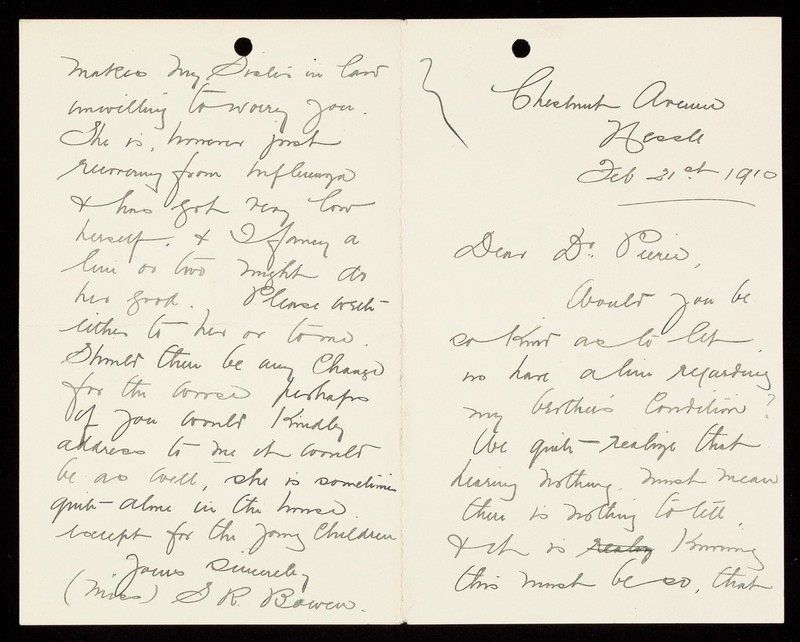 Chestnut Avenue
Hessle
Feb 21st 1910
Dear Dr. Pierce,
Would you be
so kind as to let
us have a line regarding
my brother's Condition?
We quite realize that
hearing nothing, must mean
there is nothing to tell,
& it is realy Knowing
this must be so, that
makes my Sister in law
unwilling to worry you.
She is, however just
recovering from Influenza
& has got very low
herself, & I fancy a
line or two might do
her good. Please write
either to her or to me.
Should there be any Change
for the worse perhaps
if you would Kindly
address to me it would
be as well, she is sometimes
quite alone in the house
except for the young Children
Yours sincerely
(Miss) S R. Bowen.